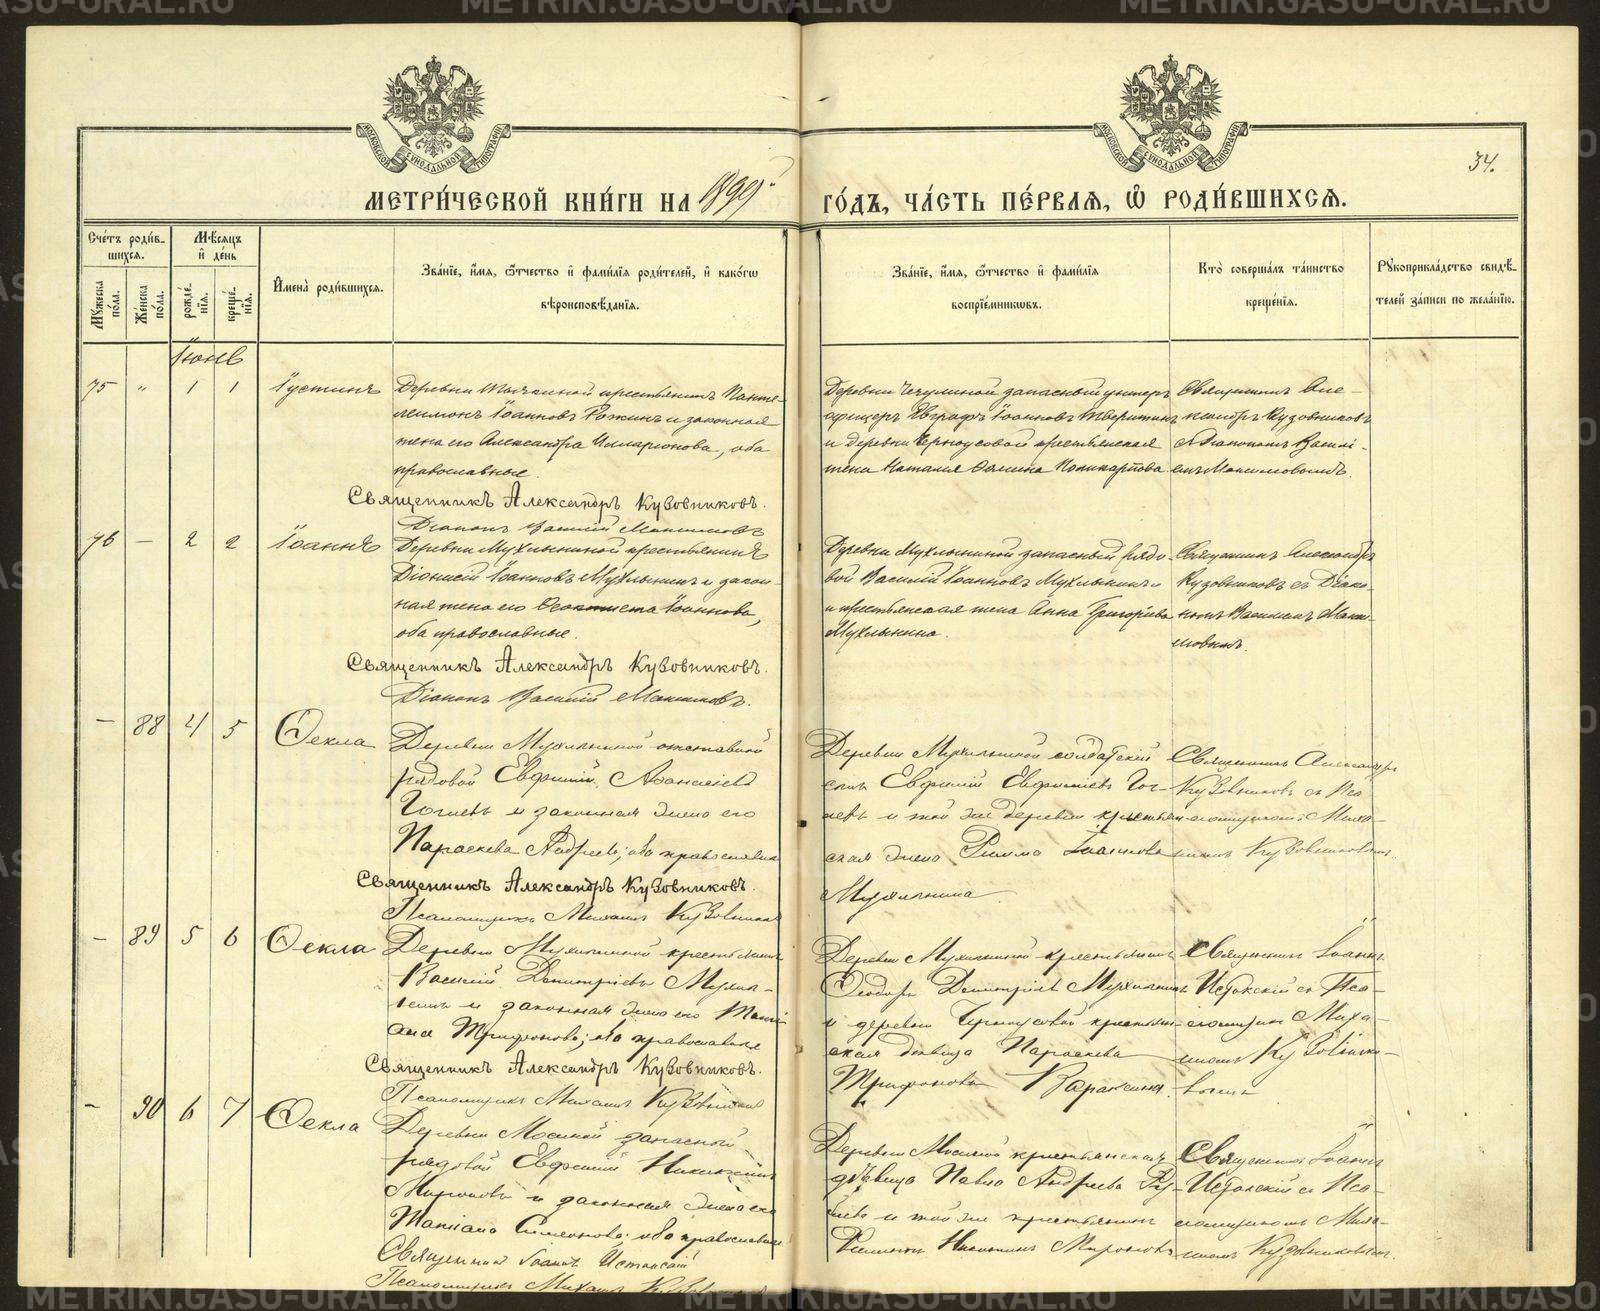 METRIKI.GASO-URAL.RU
34.
МОСКОВСКОЙ СѴНОДАЛЬНОЙ ТИПОГРАФІИ
МОСКОВСКОЙ СѴНОДАЛЬНОЙ ТИПОГРАФІИ
МЕТРИ́ЧЕСКОЙ КНИ́ГИ НА 1899 ГО́ДЪ, ЧА́СТЬ ПЕ́РВАЯ, Ѡ҆ РОДИ́ВШИХСЯ.
Счетъ роди́вшихся.
Мужеска пола.
Же́нска пола.
Мѣсяцъ и день
рожде́нія.
креще́нія.
Имена̀ роди́вшихся.
Зва́ніе, и҆́мя, ѻ҆́тчество и҆ фами́лія роди́телей, и҆ како́гѡ
вѣроисповѣ́данія.
Зва́ніе, и҆́мя, ѻ҆́тчество и҆ фами́лія
воспрiе́мниковъ.
Кто̀ соверша́лъ та́инство
креще́нія.
Рукоприкла́дство свидѣ́-
телей за́писи по жела́нію.
Іюнь
75 " 1 1 Іустинъ
Деревни крестьянинъ Панте-
леимонъ Іоанновъ и законная
жена его Александра Илларіонова, оба
православные.
Священникъ Александръ Кузовниковъ.
Діаконъ Василій Максимовъ
Деревни запасный унтеръ
офицеръ Евграфъ Іоанновъ
и деревни Черноусовой крестьянская
жена Наталія Поликарпова
Священникъ Але-
ксандръ Кузовниковъ
съ Діакономъ Василі-
емъ Максимовымъ.
76 — 2 2 Іоаннъ
Деревни Мухлыниной крестьянинъ
Діонисій Іоанновъ Мухлынинъ и закон-
ная жена его Іоаннова,
оба православные.
Священникъ Александръ Кузовниковъ.
Діаконъ Василій Максимовъ.
Деревни Мухлыниной запасный рядо-
вой Василій Іоанновъ Мухлынинъ
и крестьянская жена Анна Григорьева
Мухлынина.
Священникъ Александръ
Кузовниковъ съ Діако-
номъ Василіемъ Макси-
мовымъ.
— 88 4 5 Ѳекла
Деревни Мухлыниной отставной
рядовой Евфимій Аѳанасіевъ
и законная жена его
Параскева Андреева; оба православные
Священникъ Александръ Кузовниковъ.
Псаломщикъ Михаилъ Кузовниковъ
Деревни Мухлыниной солдатскій
сынъ Евфимій Евфиміевъ
и той же деревни крестьян-
ская жена Іоаннова
Мухлынина.
Священникъ Александръ
Кузовниковъ съ Пса-
ломщикомъ Миха-
иломъ Кузовниковымъ.
— 89 5 6 Ѳекла
Деревни Мухлыниной крестьянинъ
Василій Димитріевъ Мухлы-
нинъ и законная жена его Тати-
ана Трифонова; оба православные
Священникъ Александръ Кузовниковъ.
Псаломщикъ Михаилъ Кузовниковъ
Деревни Мухлыниной крестьянинъ
Ѳеодоръ Димитріевъ Мухлынинъ
и деревни Черноусовой крестьян-
ская дѣвица Параскева
Трифонова Вараксина.
Священникъ Іоаннъ
Истокскій съ Пса-
ломщикомъ Миха-
иломъ Кузовнико-
вымъ
— 90 6 7 Ѳекла
Деревни Мосиной запасной
рядовой Евфимій Никитинъ
Мироновъ и законная жена его
Татіана Симеонова; оба православные
Священникъ Іоаннъ Истокскій
Псаломщикъ Михаилъ Кузовниковъ
Деревни Мосиной крестьянская
дѣвица Павла Андреева
и той же крестьянинъ
Филиппъ Никитинъ Мироновъ
Священникъ Іоаннъ
Истокскій съ Пса-
ломщикомъ Миха-
иломъ Кузовниковымъ.